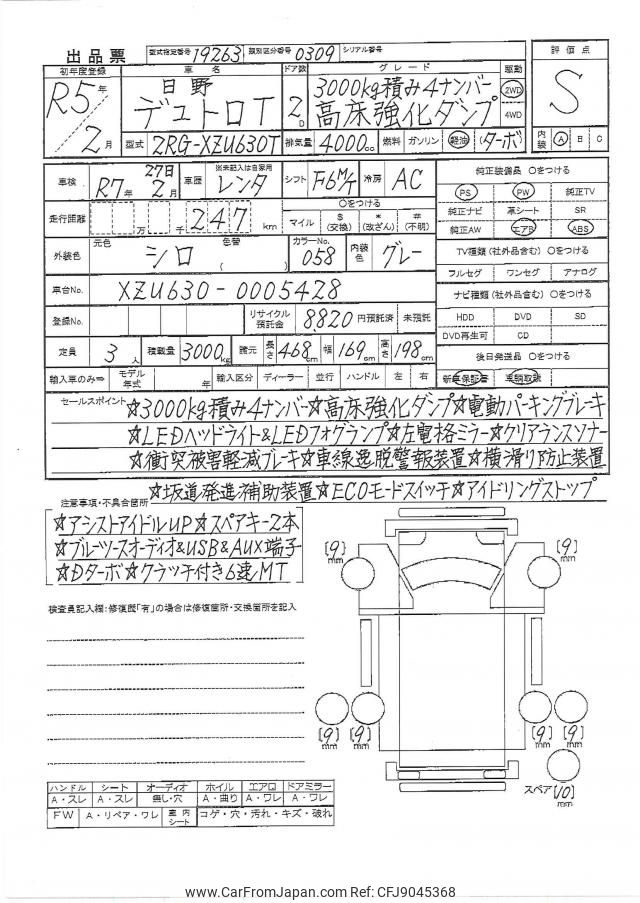 出品票 型式指定番号 19263 類別区分番号 0309 シリアル番号
評価点 S
内装 A B C
初年度登録 R5年/2月
車名 日野 デュトロT
ドア数 2D
グレード 3000kg積み4ナンバー 高床強化ダンプ
駆動 2WD 4WD
型式 2RG-XZU630T 排気量 4000cc 燃料 ガソリン 軽油 (ターボ)
車検 R7年 27日 2月 車歴 ※未記入は自家用 レンタ シフト F6M/T 冷房 AC
走行距離 万 千 247 km
○をつける
マイル $(交換) *(改ざん) #(不明)
外装色 元色 シロ 色替 ( ) カラーNo. 058 内装色 グレー
車台No. XZU630-0005428
登録No. リサイクル預託金 8820円預託済 未預託
定員 3人 積載量 3000kg 諸元 長さ 468cm 幅 169cm 高さ 198cm
輸入車のみ⇒ モデル年式 年 輸入区分 ディーラー 並行 ハンドル 左 右
純正装備品 ○をつける
PS PW 純正TV
純正ナビ 革シート SR
純正AW エアB ABS
TV種類(社外品含む) ○をつける
フルセグ ワンセグ アナログ
ナビ種類(社外品含む) ○をつける
HDD DVD SD
DVD再生可 CD
後日発送品 ○をつける
新車保証書 車輌取説
セールスポイント ☆3000kg積み4ナンバー☆高床強化ダンプ☆電動パーキングブレーキ
☆LEDヘッドライト&LEDフォグランプ☆左電格ミラー☆クリアランスソナー
☆衝突被害軽減ブレーキ☆車線逸脱警報装置☆横滑り防止装置
☆坂道発進補助装置☆ECOモードスイッチ☆アイドリングストップ
注意事項・不具合箇所
☆アシストアイドルUP☆スペアキー2本
☆ブルーツースオーディオ&USB&AUX端子
☆Dターボ☆クラッチ付き6速MT
検査員記入欄:修復歴「有」の場合は修復箇所・交換箇所を記入
[9]mm [9]mm
[9]mm [9]mm [9]mm [9]mm
スペア [10]mm
ハンドル シート オーディオ ホイル エアロ ドアミラー
A・スレ A・スレ 無し・穴 A・曲り A・ワレ A・ワレ
FW A・リペア・ワレ 車内シート コゲ・穴・汚れ・キズ・破れ
www.CarFromJapan.com Ref: CFJ9045368